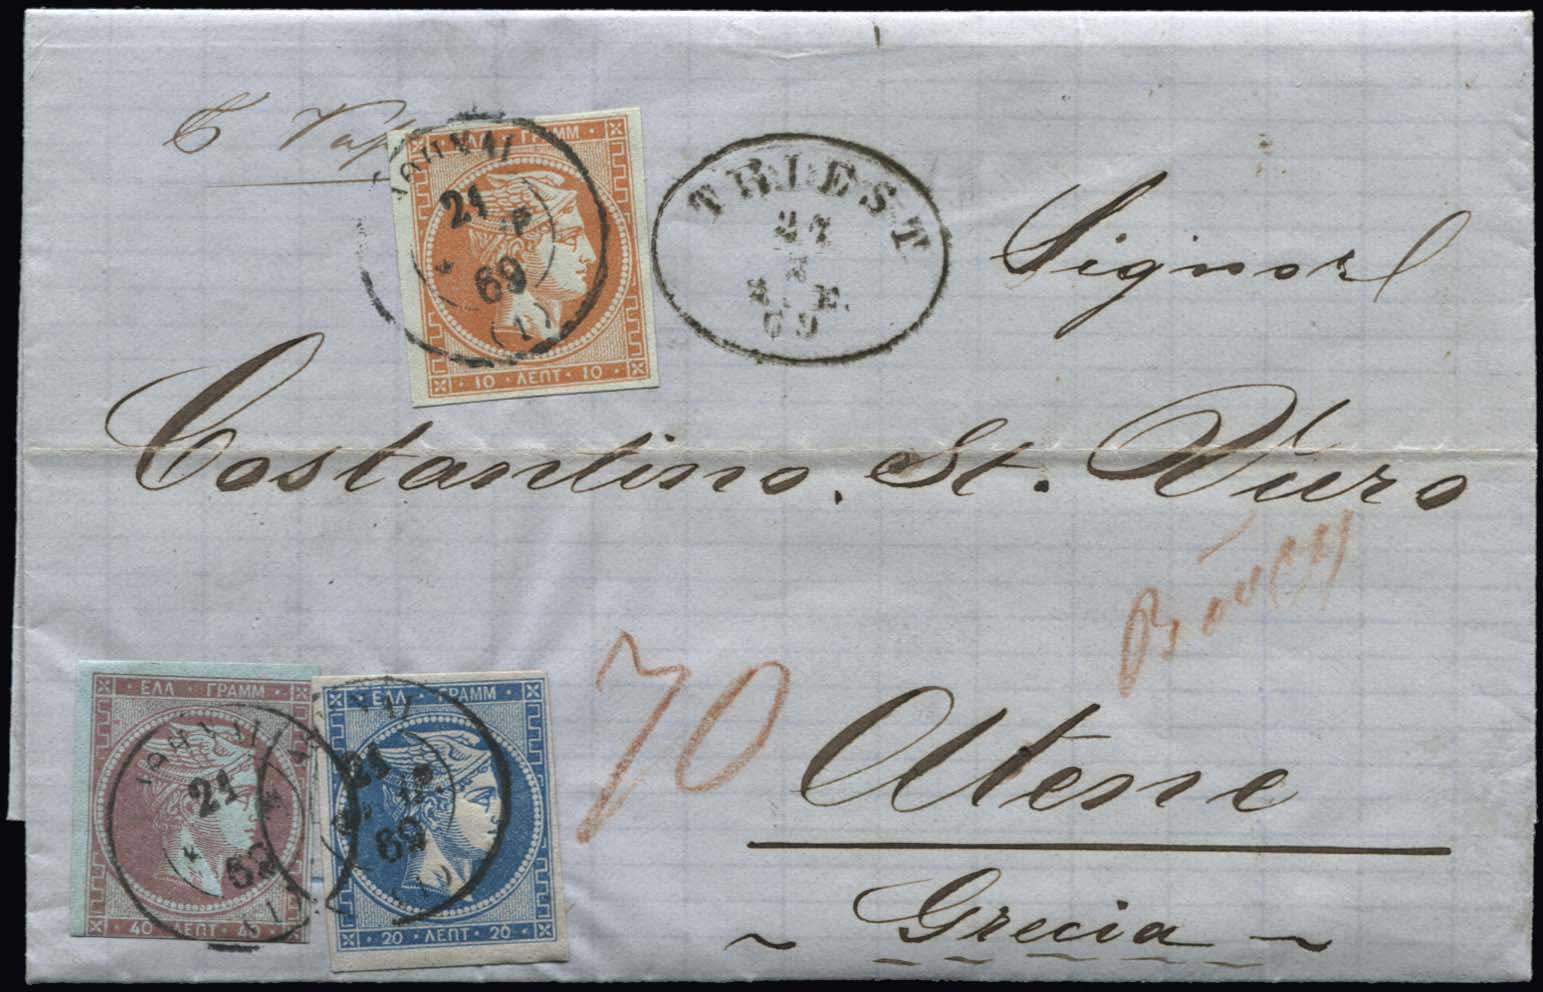 ΓΡΑΜΜ
ΑΘΗΝΑΙ
21
69
(1)
10 · ΛΕΠΤ · 10
TRIEST
69
Signor
Costantino. St. Vuro
70
Atene
Grecia
ΕΛΛ · ΓΡΑΜΜ
ΑΘΗΝΑΙ
21
69
40 · ΛΕΠΤ · 40
ΕΛΛ · ΓΡΑΜΜ
21
69
20 · ΛΕΠΤ · 20